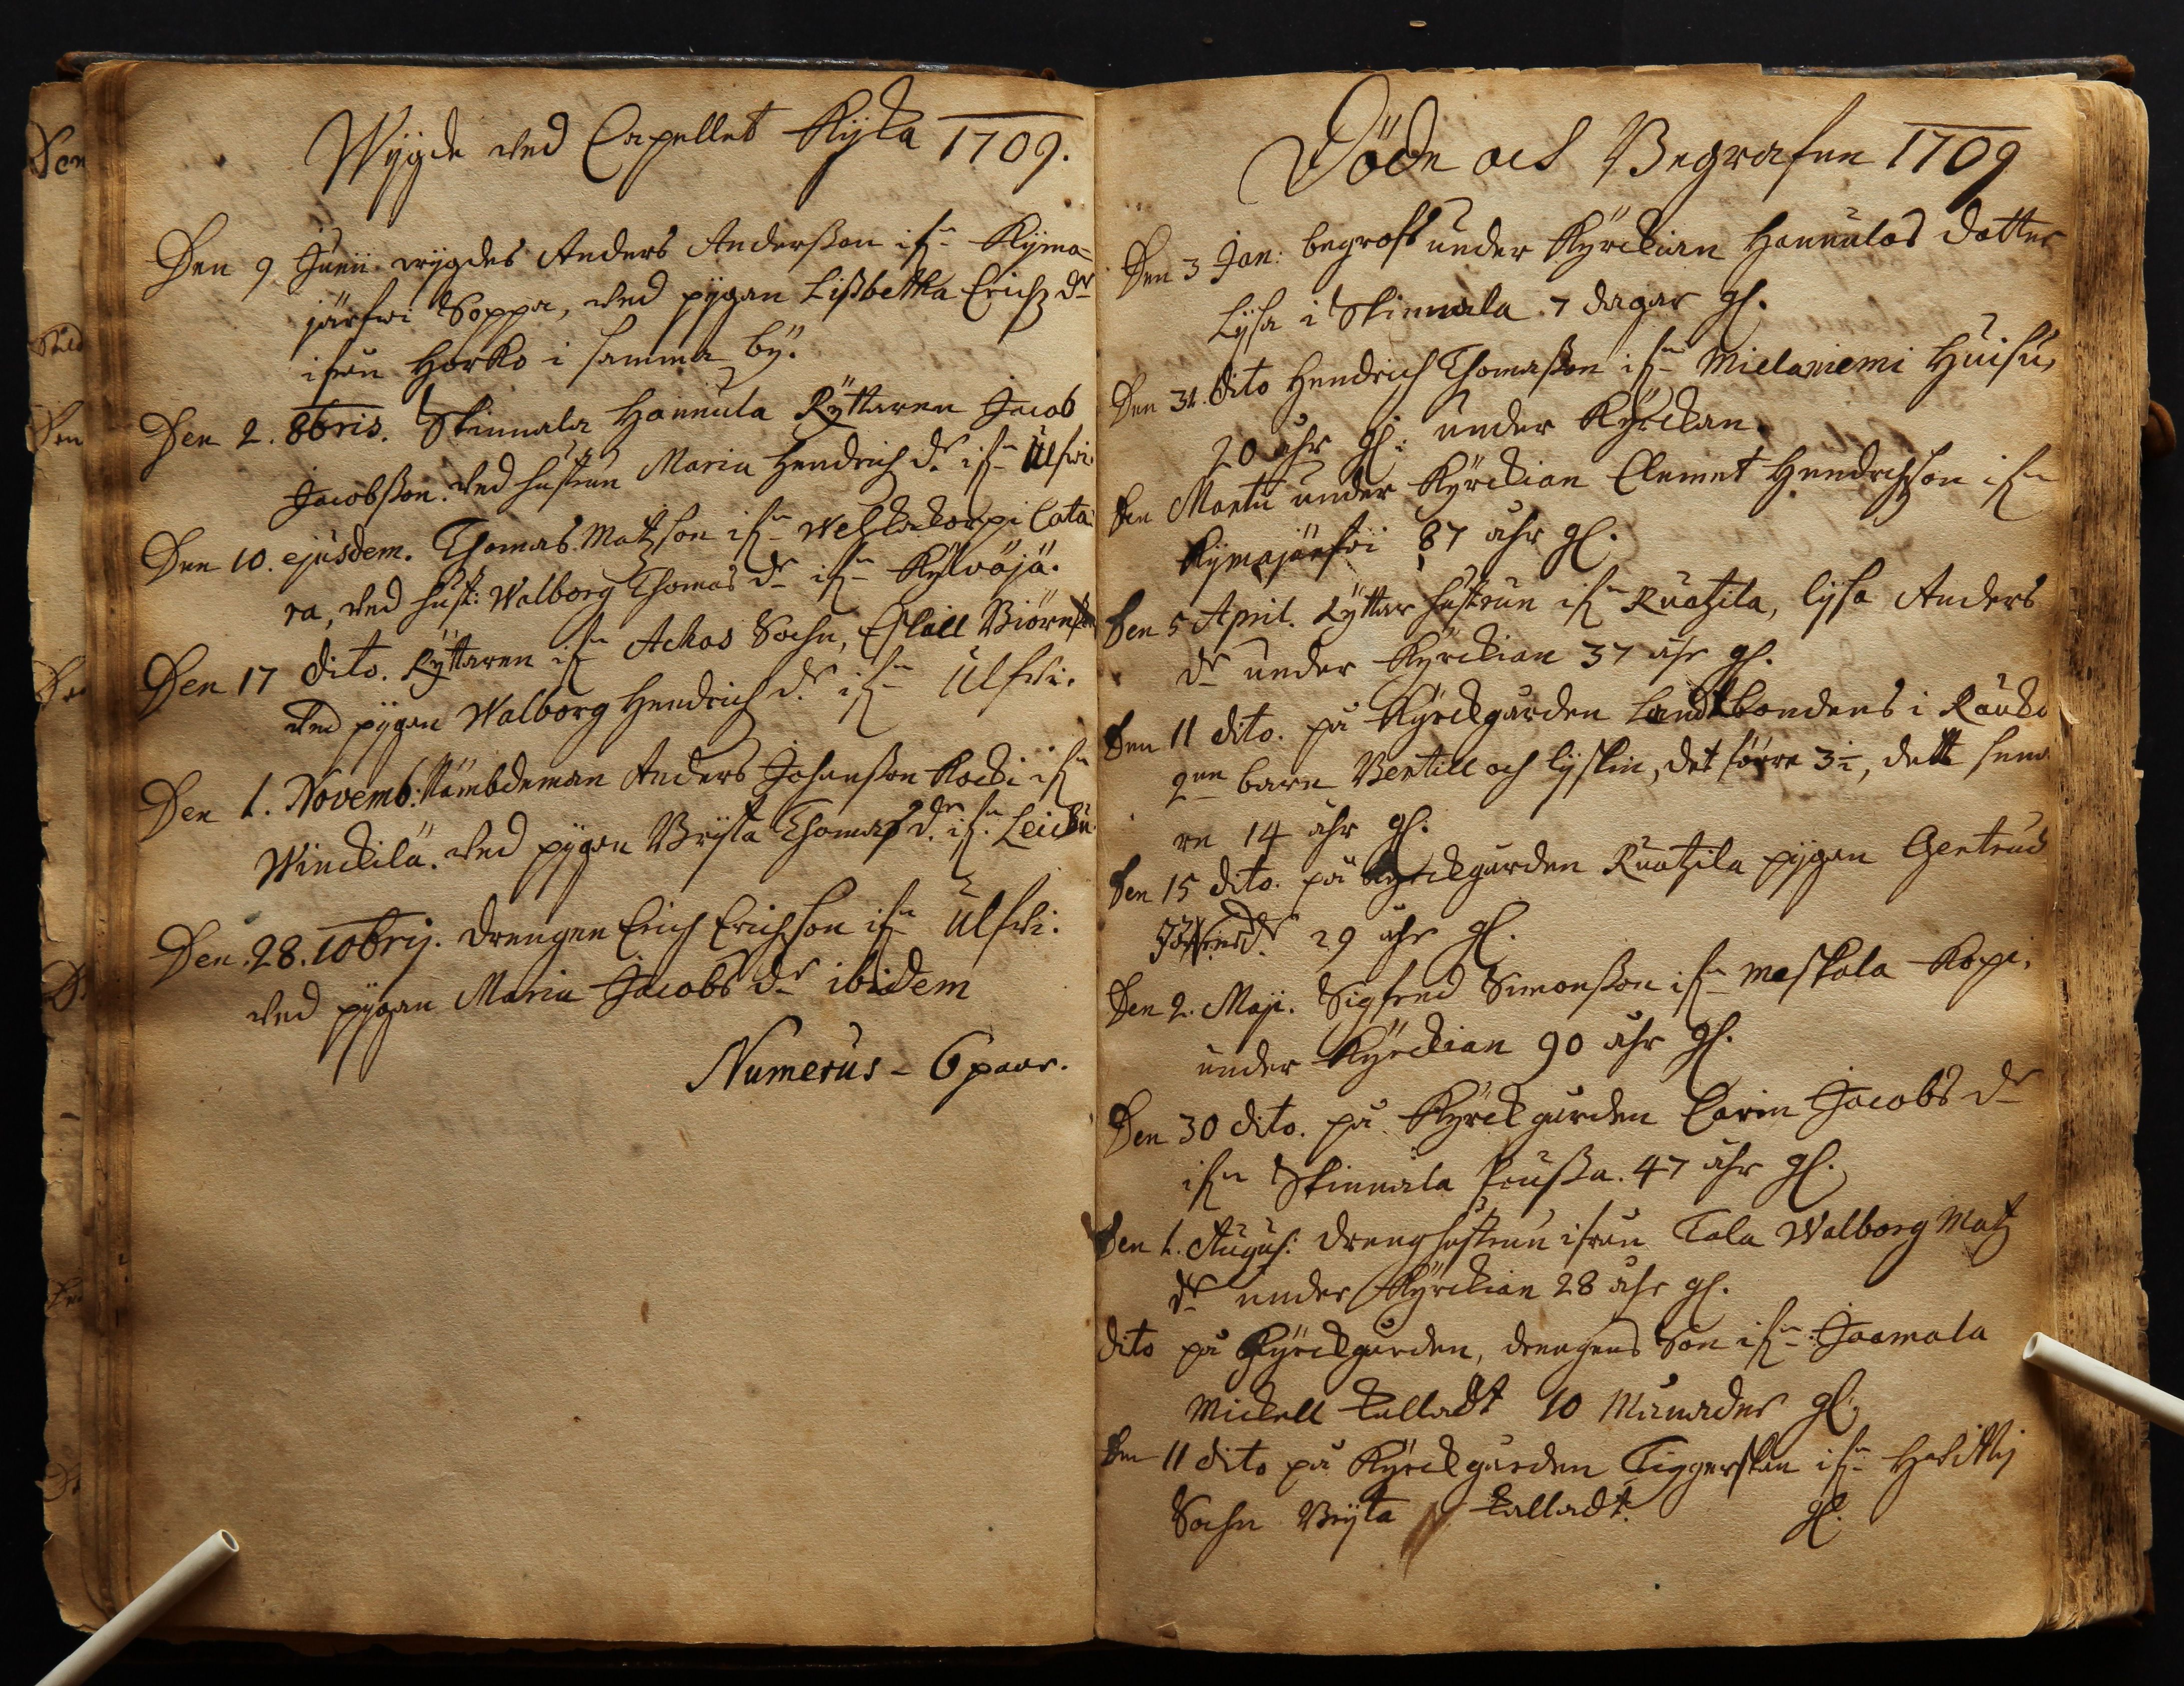 Wijgde ved Capellet Kijla 1709.
Den 9 Junii wijgdes Anders Andersßon ifn Kijma-
järfwi Soppa, ved pijgan Lißbetha Erichz dr
ifrån Horko i samma bÿ.
Den 2. 8bris. Skinnala Hannula Rÿttaren Jacob
Jacobsson. ved hustrun Maria Hendrichz dr ifn Ulfwi.
Den 10. ejusdem. Thomas Matzson ifn Cata-
ra, ved hust: Walborg Thomas dr ifn Kÿlvöjä.
Den 17 dito. Rÿttaren ifn Ackas Sochn, Eskill Biörn
ved pijgan Walborg Hendrich dr ifn Ulfwi.
Den 1. Novemb: Nämbdeman Anders Johansson Kocki ifn
Winckilä. ved pijgan Brijta Thomas dr ifn
Den. 28. 10brij. drengen Erich Erichson ifn Ulfwi.
ved pijgan Maria Jacobs dr ibidem
Numerus - 6 paar.
Döde och Begrafne 1709
Den 3 Jan: begrofs under Kÿrckian Hannulas dotter
Lijsa i Skinnala 7 dagar gl.
Den 31. dito Hendrich Thomasson ifn Mielaniemi Huisu,
20 åhr gl: under Kÿrckan.
Den Martii under Kÿrckian Clemet Hendrichson ifn
Kijmajärfwi 87 åhr gl.
Den 5 April. Rÿttar hustrun ifn Ruatzila, lijsa Anders
dr under Kyrckian 37 åhr gl.
Den 11 dito. på Kÿrckgården Landtbondens i
2ne barn Bertill och lijskin, det förre 3½, dett sena
re 14 åhr gl.
Den 15 dito. på kÿrckgården Ruatzila pijgan Gertrud
dr 29 åhr gl.
Den 2. Maji. Sigfred Simonsson ifn maskala Kopi,
under Kÿrckian 90 åhr gl.
Den 30 dito. på Kÿrckgården Carin Jacobs dr
ifn Skinnala 47 åhr gl.
Den 1. August: dreng hustrun ifrån Tala Walborg Matz
dr under Kÿrckian 28 åhr gl.
dito på Kÿrckgården, drengens Son ifn: Jaamala
Mickell kalladt 10 Månader gl.
Den 11 dito på Kÿrckgården Tiggerskan ifn
Sochn Brijta kalladt. gl.